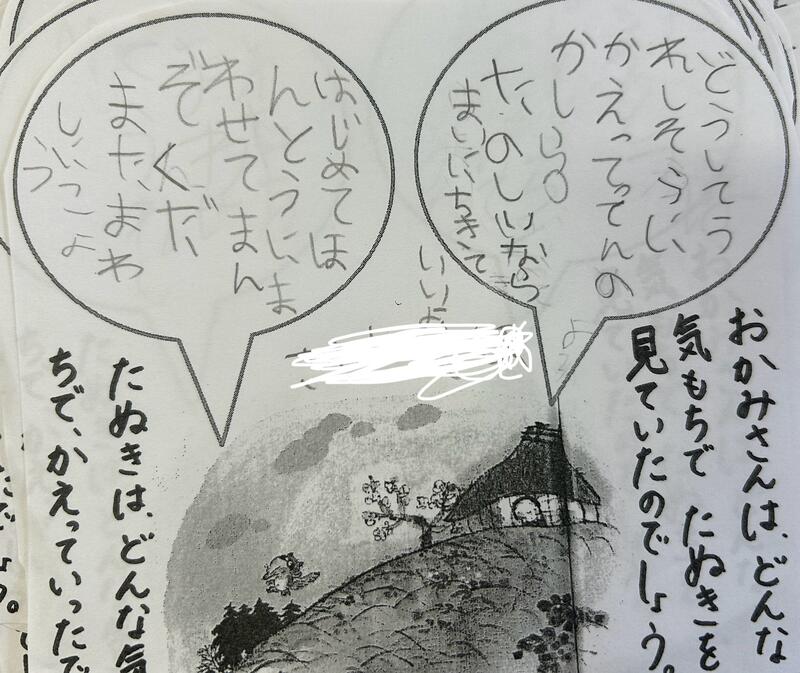 おかみさんは、どんな
気もちで たぬきを
見ていたのでしょう。
どうしてう
れしそうに
かえってってんの
かしら。
たのしいなら
まいにちきて
いいよ
はじめてほ
んとうにま
わせてまん
ぞくだ、
また、まわ
しにこよ
う
たぬきは、どんな気
ちで、かえっていったで